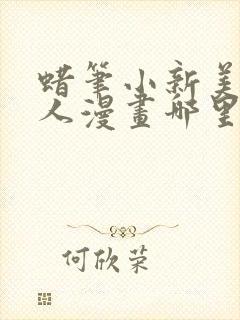 蜡笔小新美
人漫畫哪里
何欣荣